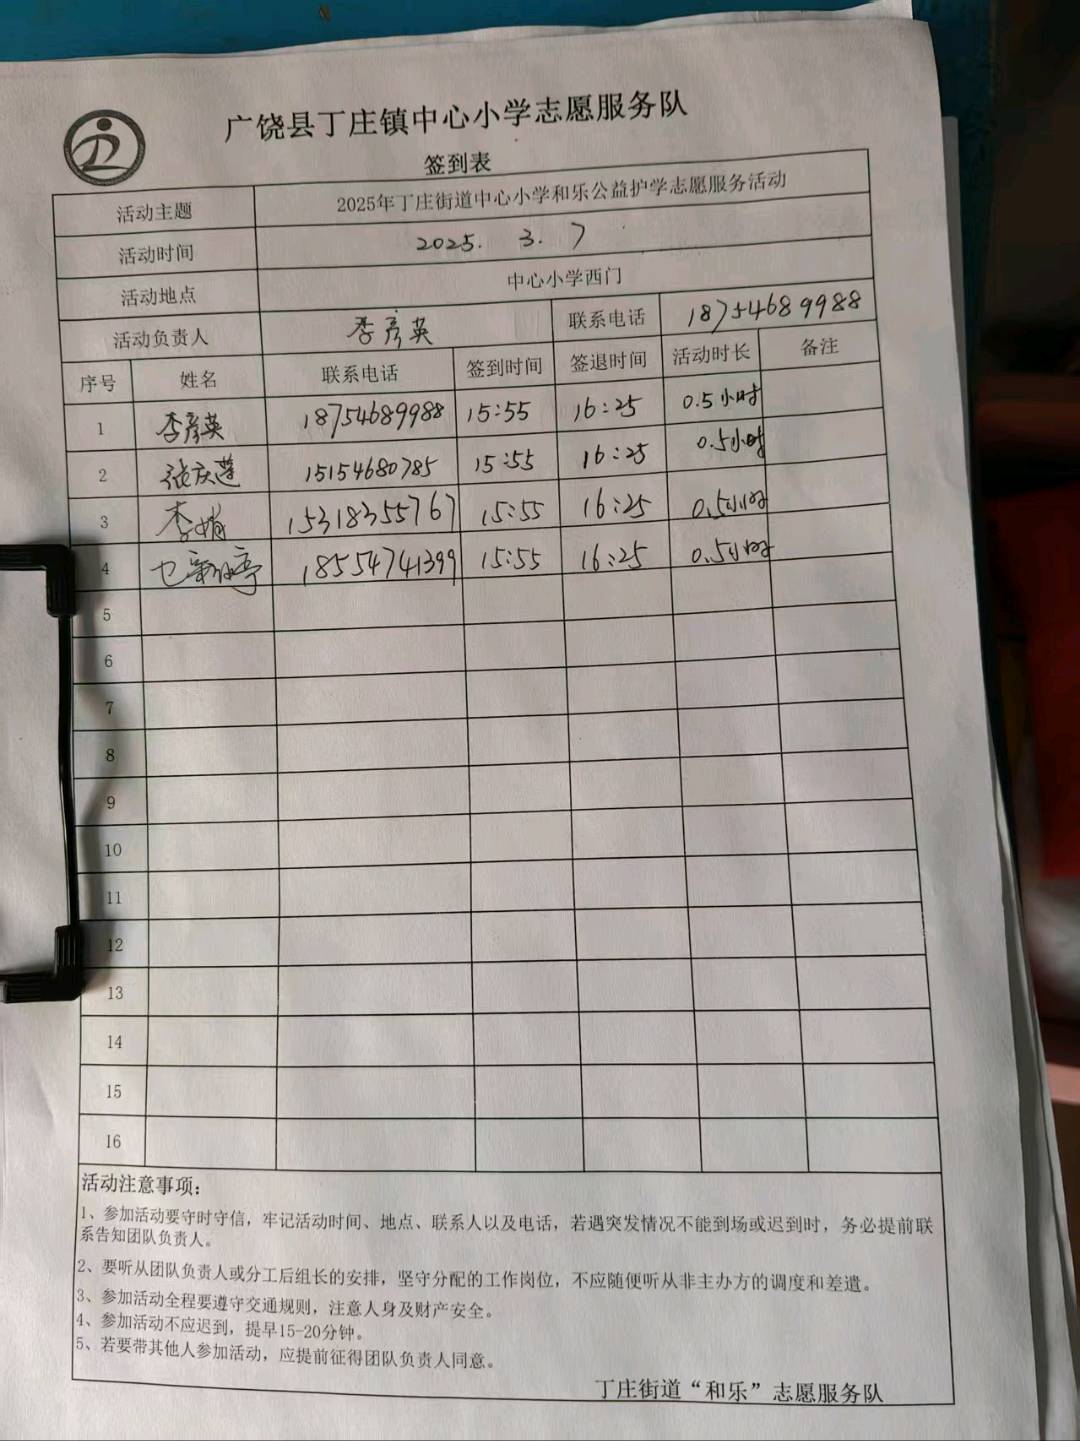 广饶县丁庄镇中心小学志愿服务队
签到表
活动主题 2025年丁庄街道中心小学和乐公益护学志愿服务活动
活动时间 2025. 3. 7
活动地点 中心小学西门
活动负责人 李彦英 联系电话 18754689988
序号 姓名 联系电话 签到时间 签退时间 活动时长 备注
1 李彦英 18754689988 15:55 16:25 0.5小时
2 张庆莲 15154680785 15:55 16:25 0.5小时
3 李娟 15318355767 15:55 16:25 0.5小时
4 18554741399 15:55 16:25 0.5小时
5
6
7
8
9
10
11
12
13
14
15
16
活动注意事项：
1、参加活动要守时守信，牢记活动时间、地点、联系人以及电话，若遇突发情况不能到场或迟到时，务必提前联
系告知团队负责人。
2、要听从团队负责人或分工后组长的安排，坚守分配的工作岗位，不应随便听从非主办方的调度和差遣。
3、参加活动全程要遵守交通规则，注意人身及财产安全。
4、参加活动不应迟到，提早15-20分钟。
5、若要带其他人参加活动，应提前征得团队负责人同意。
丁庄街道“和乐”志愿服务队